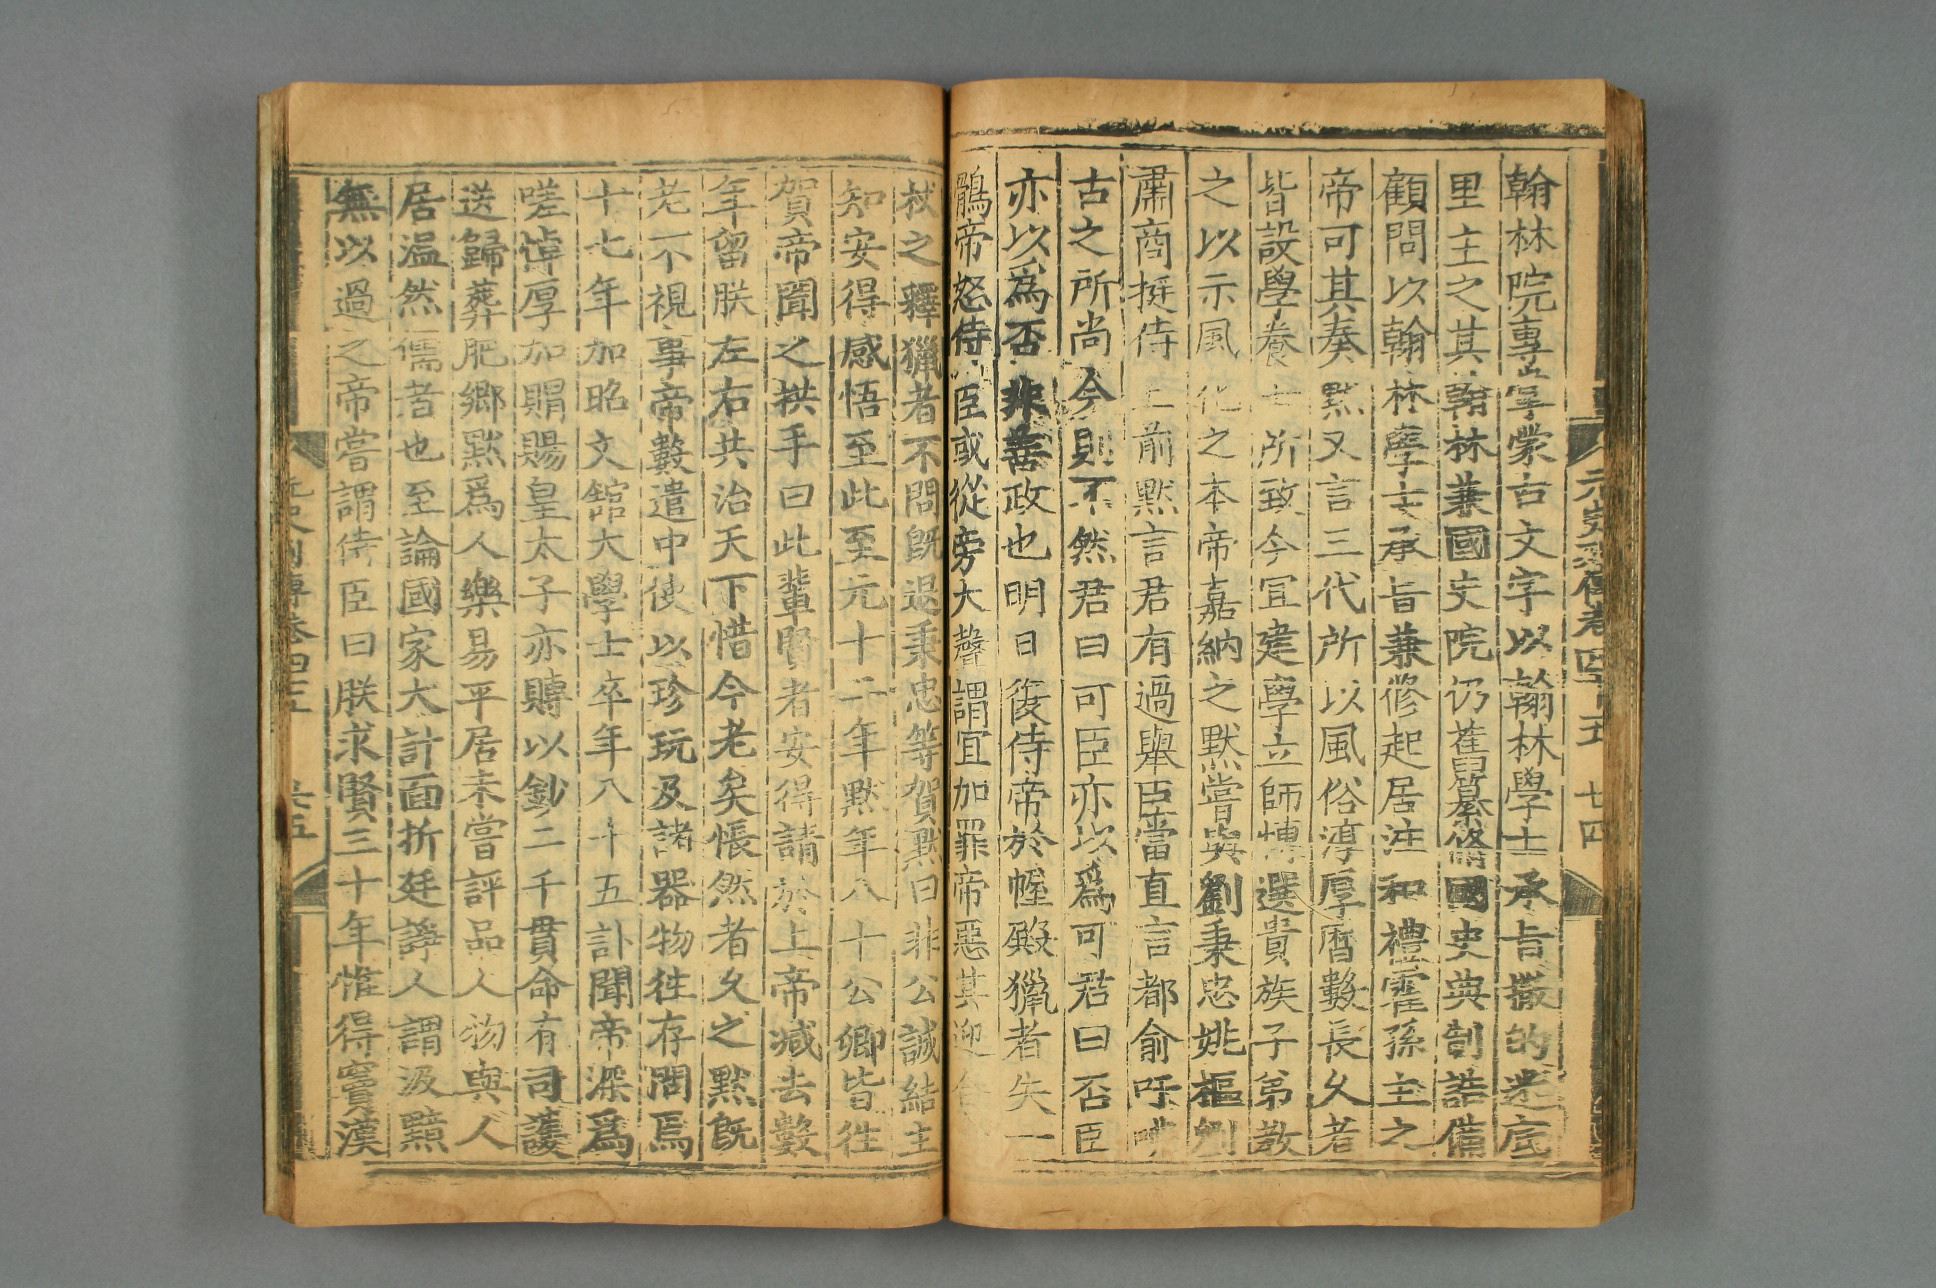 元史列傳卷四十五 廿四
翰林院專掌蒙古文字以翰林學士承旨撒的迷底
里主之其翰林兼國史院仍舊纂修國史典制誥備
顧問以翰林學士承旨兼修起居注和禮霍孫主之
帝可其奏默又言三代所以風俗淳厚曆數長久者
皆設學養士所致今宜建學立師博選貴族子弟教
之以示風化之本帝嘉納之默嘗與劉秉忠姚樞劉
肅商挺侍上前默言君有過舉臣當直言都俞吁咈
古之所尚今則不然君曰可臣亦以爲可君曰否臣
亦以爲否非善政也明日復侍帝於幄殿獵者失一
鶻帝怒侍臣或從旁大聲謂宜加罪帝惡其迎合
杖之釋獵者不問旣退秉忠等賀默曰非公誠結主
知安得感悟至此至元十二年默年八十公卿皆往
賀帝聞之拱手曰此輩賢者安得請於上帝減去數
年留朕左右共治天下惜今老矣悵然者久之默旣
老不視事帝數遣中使以珍玩及諸器物往存問焉
十七年加昭文舘大學士卒年八十五訃聞帝深爲
嗟悼厚加賵賜皇太子亦賻以鈔二千貫命有司護
送歸葬肥鄉默爲人樂易平居未嘗評品人物與人
居温然儒者也至論國家大計面折廷諍人謂汲黯
無以過之帝嘗謂侍臣曰朕求賢三十年惟得竇漢
元史列傳卷四十五 廿五